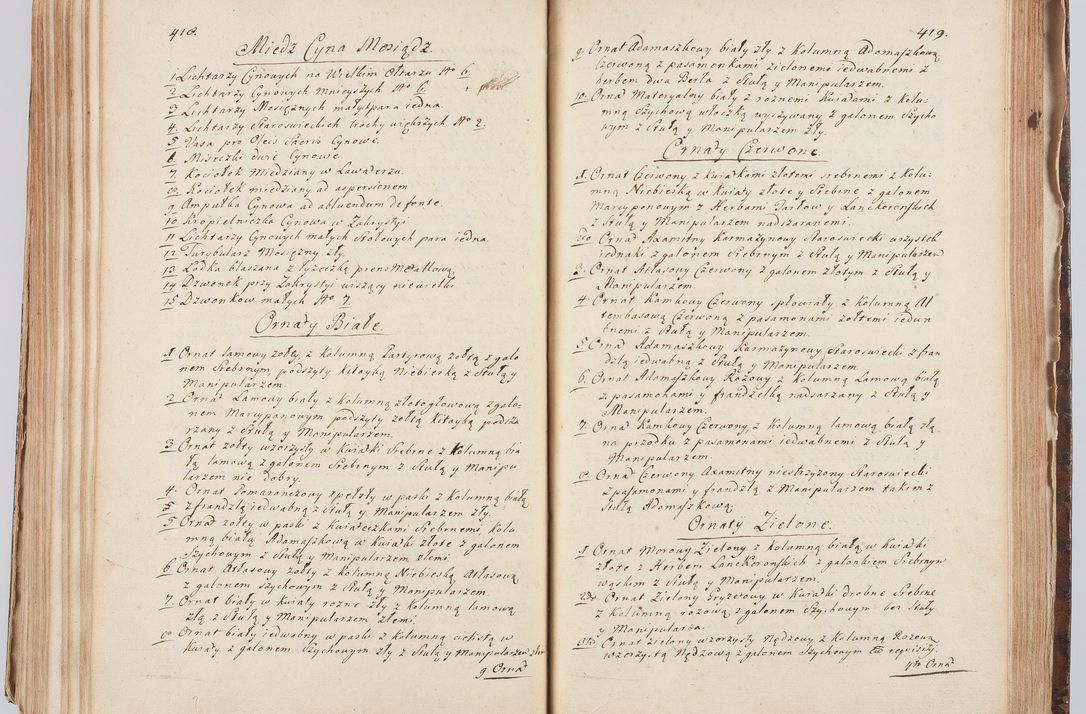 418.
Miedz Cyna Mosiądz.
1 Lichtarzy Cynowych na Wielkim Ołtarzu No 6.
2 Lichtarzy Cynowych Mnieyszych No 6.
3 Lichtarzy Mosiężnych małych para iedna.
4. Lichtarzy Staroswieckich trochy większych No 2.
5 Vasa pro Oleis Sacris Cynowe.
6. Miseczki dwie Cynowe
7. Kociołek Miedziany w Lawaterzu.
8 Kociołek miedziany ad aspersionem
9 Ampułka Cynowa ad abluendum de fonte.
10 Kropielniczka Cynowa w Zakrystyi
11 Lichtarzy Cynowych małych Stołowych para iedna.
12 Turybularz Mosiężny zły.
13 Lodka blaszana z łyzeczką
14 Dzwonek przy Zakrystyi wiszący niewielki
15 Dzwonkow małych No 7
Ornaty Białe.
1 Ornat lamowy zołty, z kolumną Partyrową zołtą z galo
nem Srebrnym podszyty kitayką Niebieską z Stułą y
Manipularzem.
2. Ornat Lamowy biały z kolumną złotogłowową z galo-
nem Marcypanowym podszyty zołtą kitayką podsza
rzany z Stułą y Manipularzem.
3 Ornat zołty wzorzysty w kwiatki Srebrne z kolumną bia
łą lamową z galonem Srebrnym z Stułą y Manipu
larzem nie dobry.
4. Ornat Pomaranczowy spełzły w paski z kolumną białą
z frandzlą iedwabną z Stułą y Manipularzem zły.
5 Ornat zołty w paski z kwiateczkami Srebrnemi, kolu
mną białą Adamaszkową w kwiatki złote z galonem
Szychowym z Stułą y Manipularzem złemi.
6 Ornat Atłasowy zołty z kolumną Niebieską Atłasową
z galonem szychowym z Stułą y Manipularzem
7. Ornat biały w kwiaty rozne zły z kolumną lamową
złą z Stułą y Manipularzem złemi.
8o Ornat biały iedwabny w paski z kolumną cielistą w
kwiaty z galonem Szychowym zły z Stułą y Manipularzem złem
9 Ornat
419.
9. Ornat Adamaszkowy biały zły z kolumną Adamaszkową
Czerwoną z pasamonkami zielonemi iedwabnemi z
herbem dwa Berła z Stułą y Manipularzem.
10. Ornat Materyalny biały z roznemi kwiatami z kolu-
mną Szychową włoczką wyszywany z galonem Szycho
wym z Stułą y Manipularzem zły.
Ornaty Czerwone.
1. Ornat Czerwony z kwiatkami złotemi srebrnemi z kolu-
mną Niebieską w kwiaty złote y Srebrne z galonem
Marcyponowym z Herbami Tarłow y Lanckoronskich
z Stułą y Manipularzem nadszaranemi.
2do Ornat Axamitny Karmazynowy Staroswiecki wszystek
iednaki z galonem Srebrnym z Stułą y Manipularzem
3. Ornat Atłasowy Czerwony z galonem złotym z Stułą y
Manipularzem.
4. Ornat Kamkowy Czerwony spłowiały, z kolumną Al
tembasową Czerwoną z pasamonami zołtemi iedwa
bnemi z Stułą y Manipularzem.
5 Ornat Adamaszkowy Karmazynowy Staroswiecki z fran
dzlą iedwabną z Stułą y Manipularzem
6. Ornat Adamaszkowy Rozowy z kolumną Lamową białą
z pasamonami y frandzelką nadszarzany z Stułą y
Manipularzem.
7. Ornat Kamkowy Czerwony z kolumną lamową białą złą
na przodku z pasamonami iedwabnemi z Stułą y
Manipularzem.
8. Ornat Czerwony Axamitny niestrzyzony Staroswiecki
z pasamonami y frandzlą z Manipularzem takimz
Stułą Adamaszkową
Ornaty Zielone.
1 Ornat Morowy Zielony z kolumną białą w kwiatki
złote z Herbem Lanckoronskich z galonkiem Srebrnym
wąskim z Stułą y Manipularzem.
2do Ornat zielony Gryzetowy w kwiatki drobne Srebrne
z kolumną rozową z galonem Szychowym bez Stuły
y Manipularza.
Ornat zielony wzorzysty Nędzowy z kolumną Rozową
wzorzystą Nędzową z galonem Szychowym cū requisity.
4to Ornat